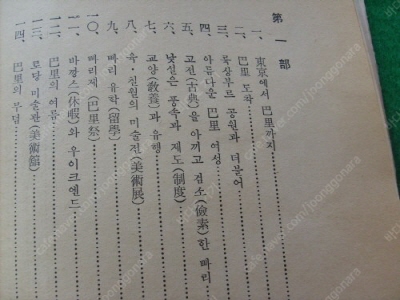 第一部
一、東京에서 巴里까지
二、巴里 도착
三、룩상부르 공원과 더불어
四、아름다운 巴里 여성
五、고전(古典)을 아끼고 검소(儉素)한 빠리
六、낯설은 풍속과 제도(制度)
七、교양(敎養)과 유행
八、미술전(美術展)
九、빠리 유학(留學)
一〇、빠리제(巴里祭)
一一、바깡스(休暇)와 우이크엔드
一二、巴里의 여름
一三、로당 미술관(美術館)
一四、巴里의 무덤